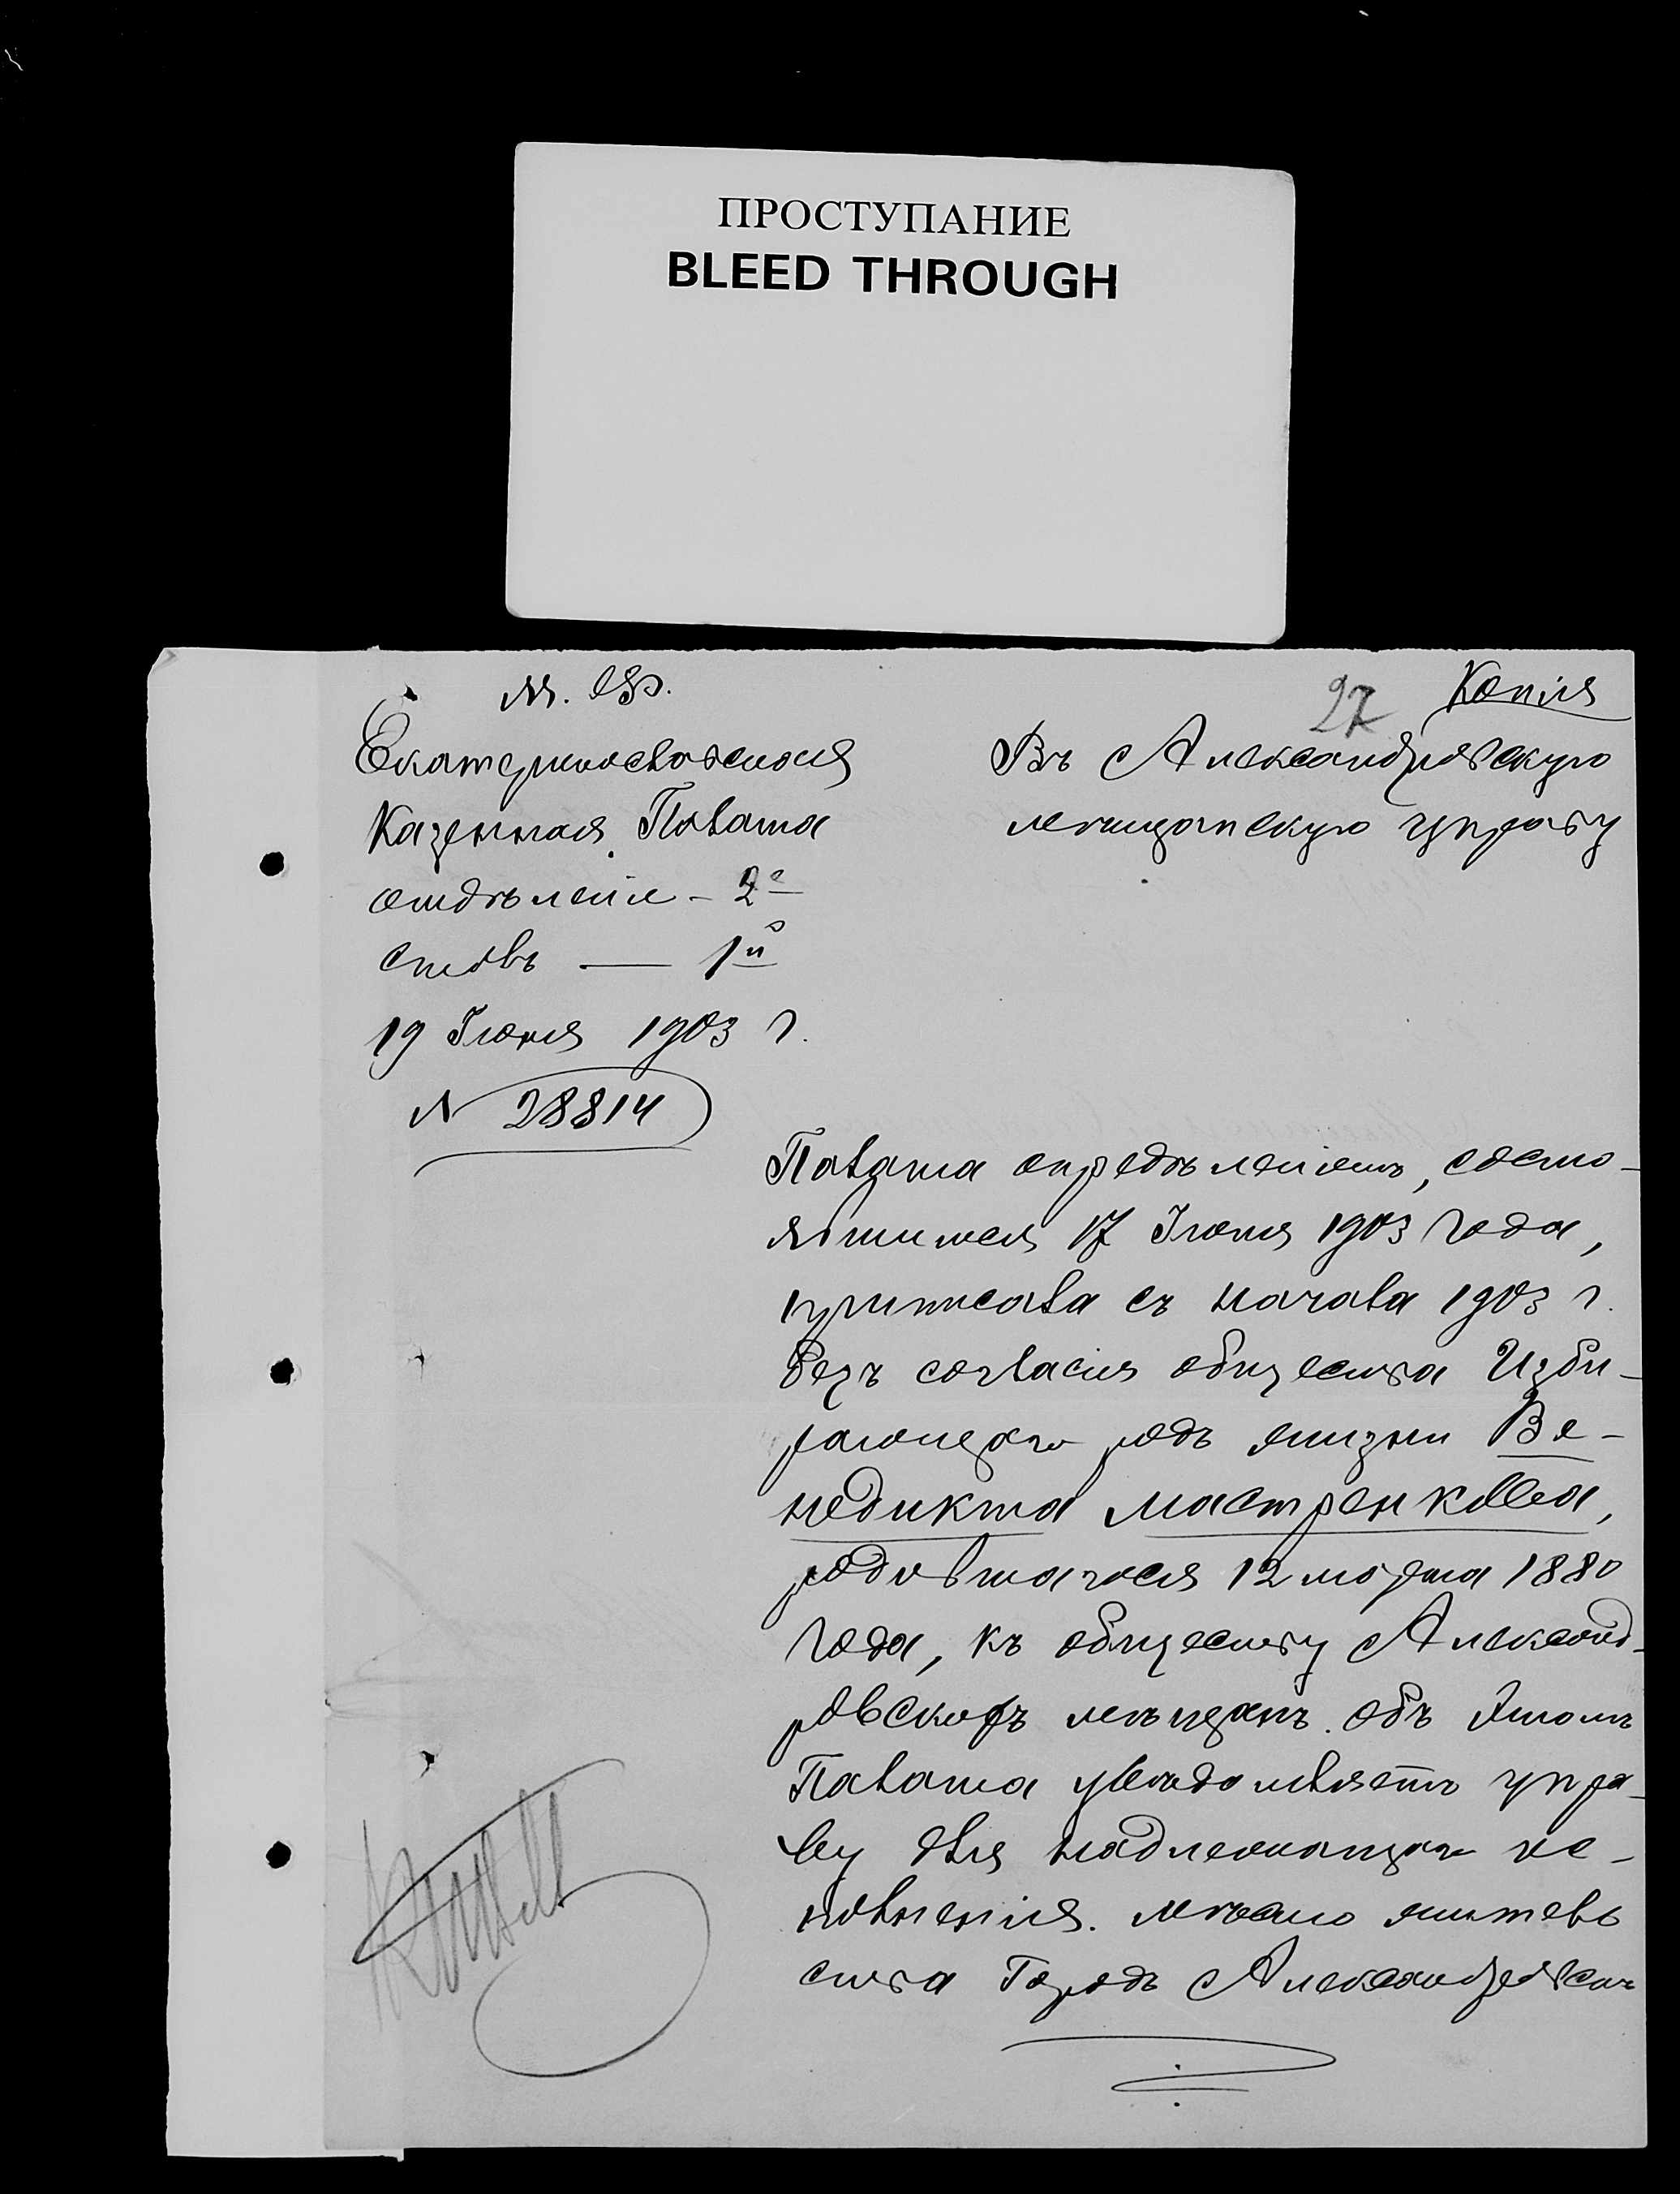 ПРОСТУПАНИЕ
BLEED THROUGH
27 Копія
М. Ф.
Екатеринославская
Казенная Палата
отдѣленіе - 2е
столъ — 1й
19 Іюня 1903 г.
N 28814
Въ Александровскую
мещанскую управу
Палата опредѣленіемъ, состо-
явшимся 17 Іюня 1903 года,
приписала съ начала 1903 г.
безъ согласія общества Изби-
рающаго родъ жизни Ве-
недикта Мастренкова,
родившагося 12 марта 1880
года, къ обществу Александ-
ровскихъ мѣщанъ. Объ этомъ
Палата увѣдомляетъ упра-
ву для надлежащаго ис-
полненія. Мѣсто житель
ства Городъ Александровскъ